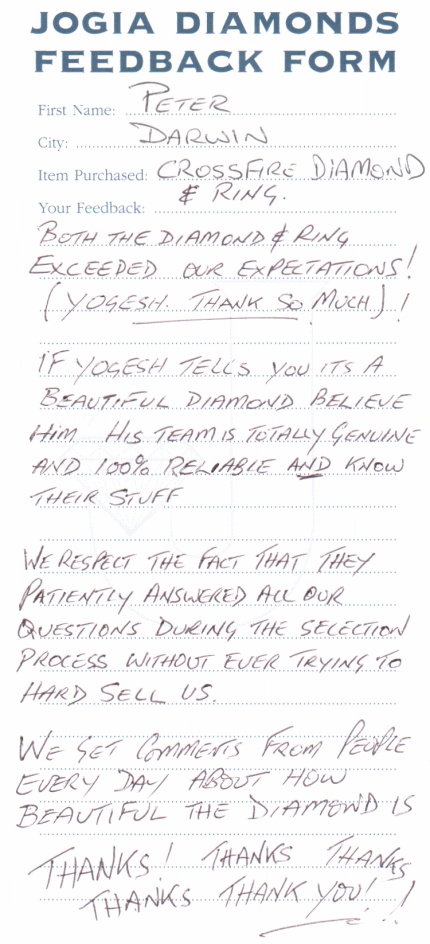 JOGIA DIAMONDS
FEEDBACK FORM
First Name: PETER
City: DARWIN
Item Purchased: CROSSFIRE DIAMOND
Your Feedback: & RING.
BOTH THE DIAMOND & RING
EXCEEDED OUR EXPECTATIONS!
(YOGESH. THANK SO MUCH)!
IF YOGESH TELLS YOU ITS A
BEAUTIFUL DIAMOND BELIEVE
HIM HIS TEAM IS TOTALLY GENUINE
AND 100% RELIABLE AND KNOW
THEIR STUFF
WE RESPECT THE FACT THAT THEY
PATIENTLY ANSWERED ALL OUR
QUESTIONS DURING THE SELECTION
PROCESS WITHOUT EVER TRYING TO
HARD SELL US.
WE GET COMMENTS FROM PEOPLE
EVERY DAY ABOUT HOW
BEAUTIFUL THE DIAMOND IS
THANKS! THANKS THANKS
THANKS THANK YOU!!!